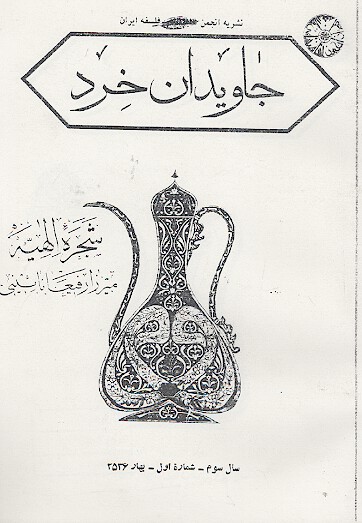 نشریه انجمن فلسفه ایران
جاویدان خِرد
شجرهٔ الهیّه
میرزا رفیعا نائینی
سال سوم - شمارهٔ اول - بهار ۲۵۳۶